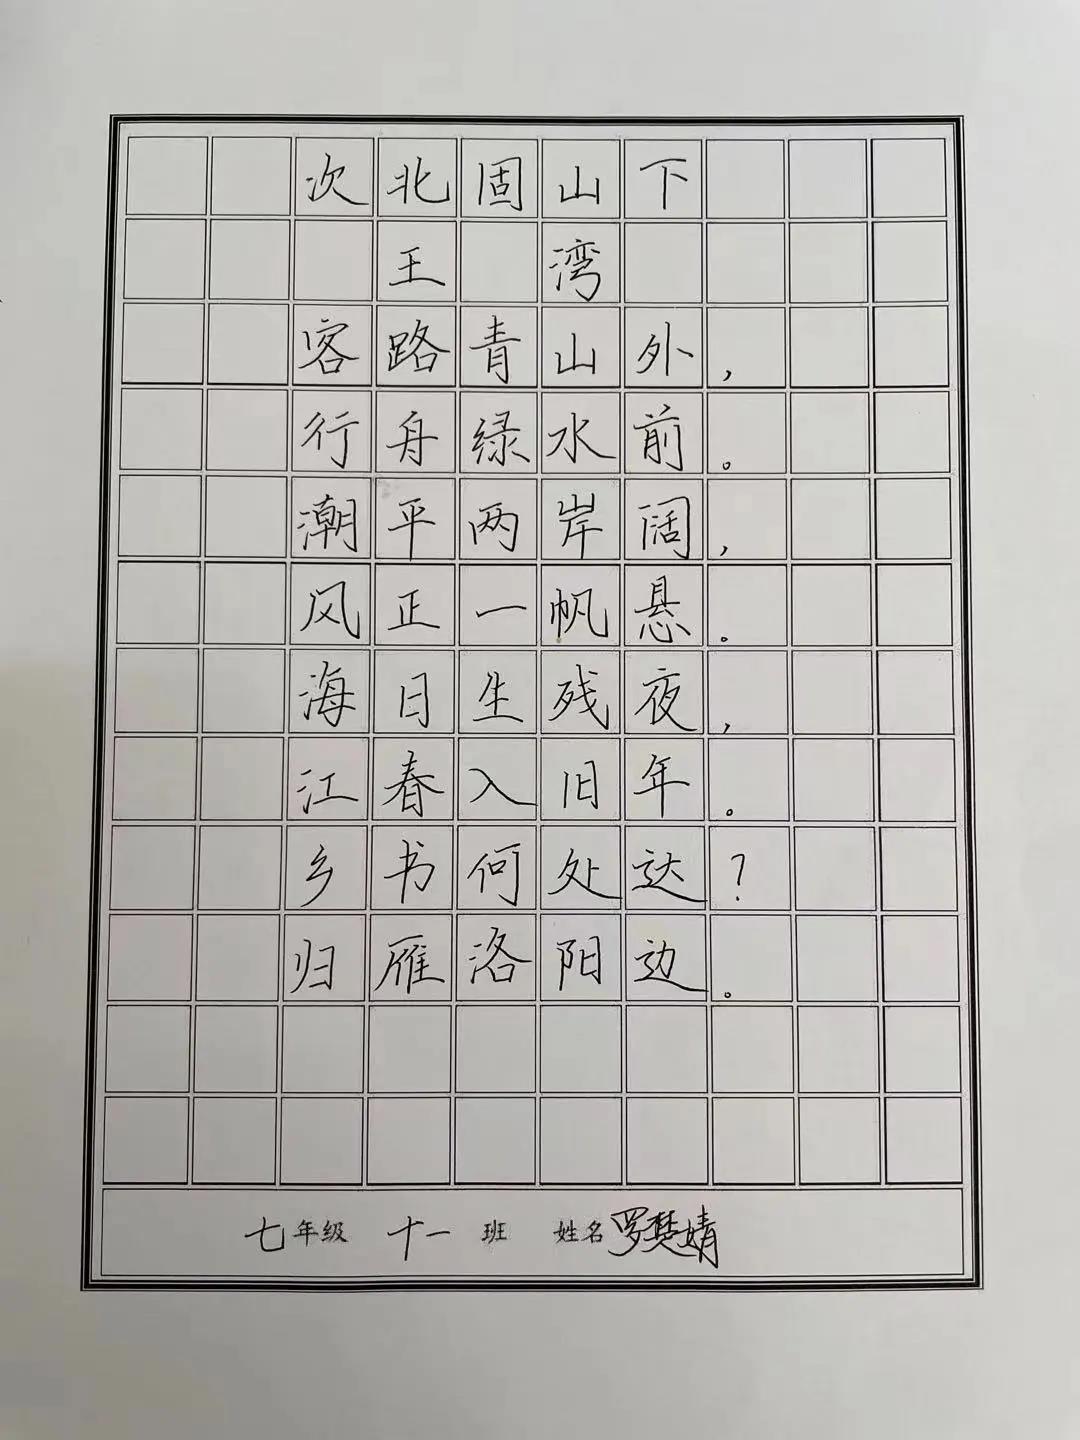 次北固山下
王 湾
客路青山外，
行舟绿水前。
潮平两岸阔，
风正一帆悬。
海日生残夜，
江春入旧年。
乡书何处达？
归雁洛阳边。
七年级 十一 班 姓名 罗樊婧